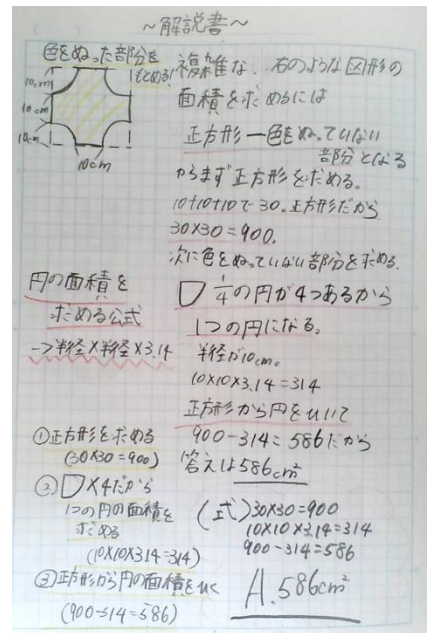 ～解説書～
色をぬった部分を
もとめる!
10cm
10cm
10cm
10cm
複雑な、右のような図形の
面積を求めるには
正方形ー色をぬっていない
部分となる
からまず正方形を求める。
10+10+10で30.正方形だから
30×30=900.
次に色をぬっていない部分を求める.
円の面積を
求める公式
→半径×半径×3.14
1/4の円が4つあるから
1つの円になる。
半径が10cm。
10×10×3.14=314
正方形から円をひいて
900-314=586だから
答えは586cm²
①正方形を求める
(30×30=900)
②×4だから
1つの円の面積を
求める
(10×10×3.14=314)
③正方形から円の面積をひく
(900-314=586)
(式)30×30=900
10×10×3.14=314
900-314=586
A.586cm²